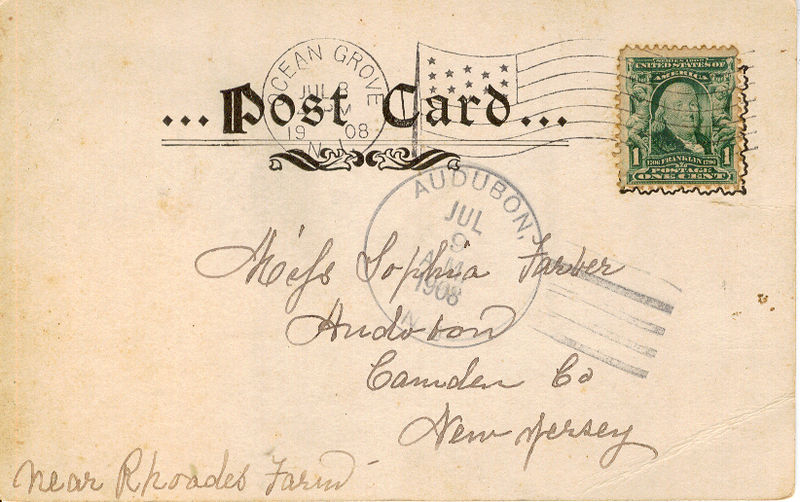 OCEAN GROVE
JUL 8
PM
1908
N.J.
... Post Card ...
SERIES 1902
UNITED STATES OF
AMERICA
1 1706 FRANKLIN 1790 1
POSTAGE
ONE CENT
AUDUBON,
JUL
9
AM
1908
N
Miss Sophia Farber
Audobon
Camden Co
New Jersey
near Rhoades Farm